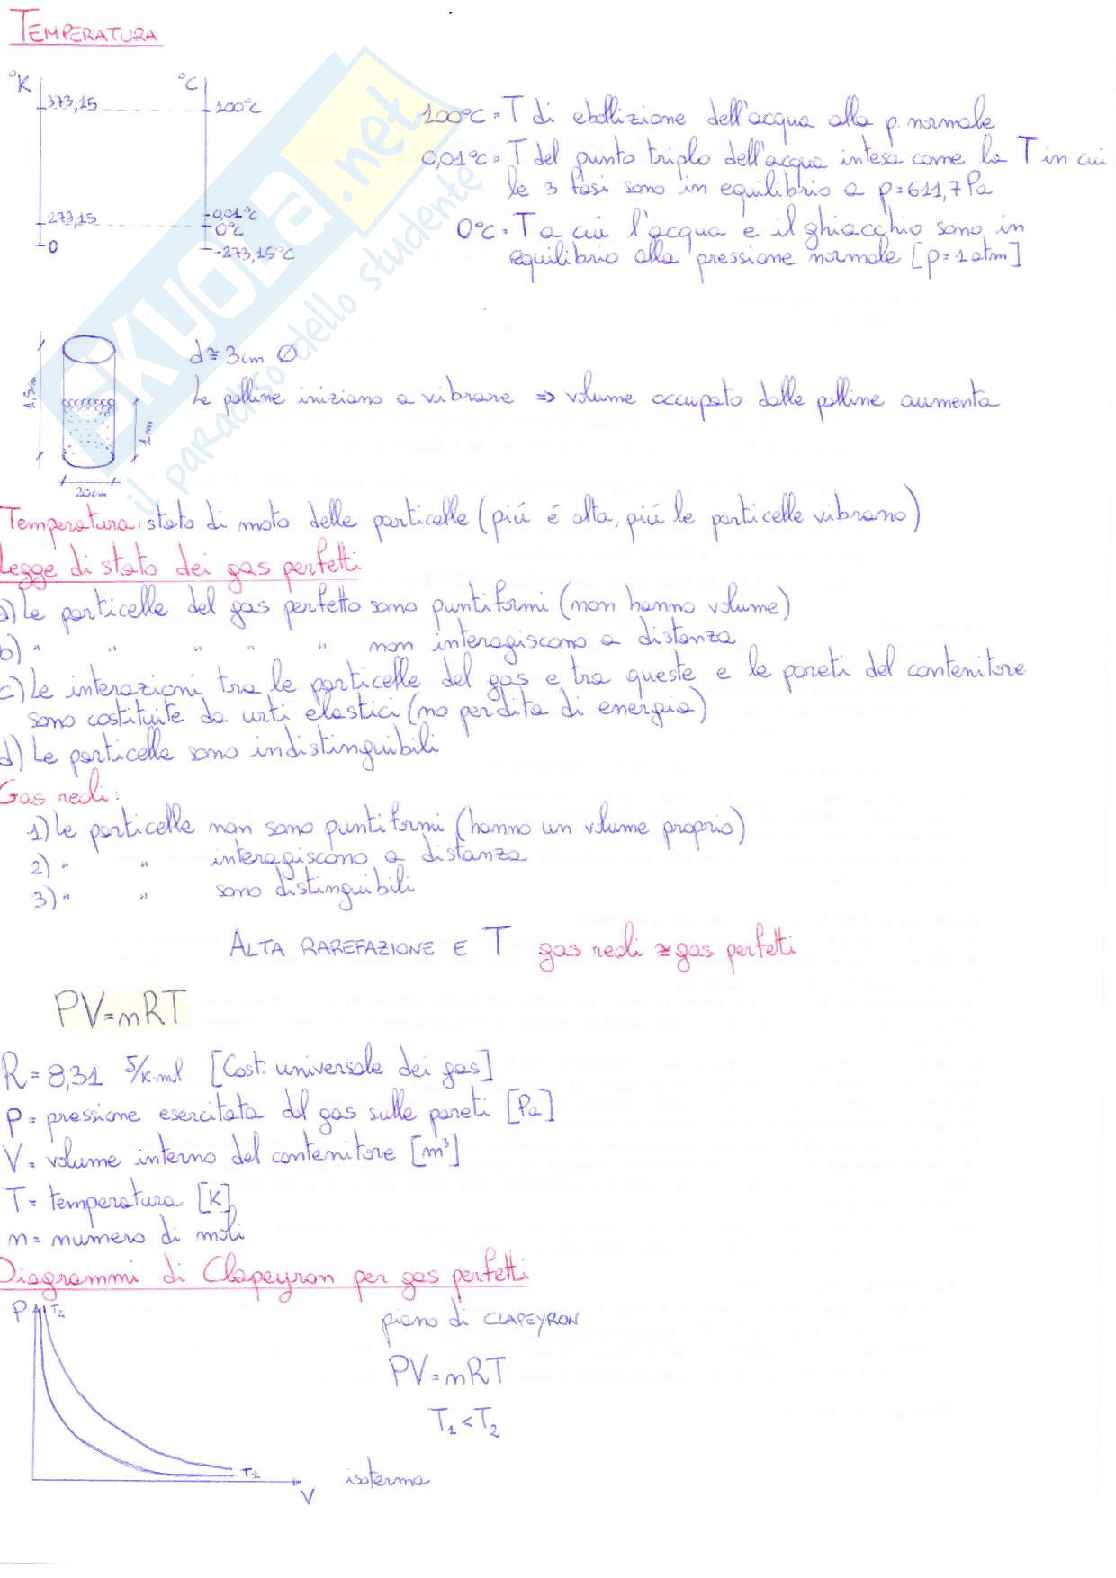 TEMPERATURA
°K
°C
373,15
100°C
273,15
0,01°C
0°C
0
-273,15°C
100°C = T di ebollizione dell'acqua alla p. normale
0,01°C = T del punto triplo dell'acqua intesa come la T in cui
le 3 fasi sono in equilibrio a p=611,7 Pa
0°C = T a cui l'acqua e il ghiacchio sono in
equilibrio alla pressione normale [p=1 atm]
SKUOLA.net
il paradiso dello studente
d≅3cm Ø
Le palline iniziano a vibrare => volume occupato dalle palline aumenta
1,5m
1m
20cm
Temperatura: stato di moto delle particelle (piú é alta, piú le particelle vibrano)
Legge di stato dei gas perfetti
a) Le particelle del gas perfetto sono puntiformi (non hanno volume)
b) " " " " " non interagiscono a distanza
c) Le interazioni tra le particelle del gas e tra queste e le pareti del contenitore
sono costituite da urti elastici (no perdita di energia)
d) Le particelle sono indistinguibili
Gas reali:
1) Le particelle non sono puntiformi (hanno un volume proprio)
2) " " interagiscono a distanza
3) " " sono distinguibili
ALTA RAREFAZIONE E T gas reali ≅ gas perfetti
PV=nRT
R = 8,31 J/K·mol [Cost. universale dei gas]
P = pressione esercitata dal gas sulle pareti [Pa]
V = volume interno del contenitore [m³]
T = temperatura [K]
n = numero di moli
Diagrammi di Clapeyron per gas perfetti
P
T₂
piano di CLAPEYRON
PV=nRT
T₁<T₂
T₁
V
isoterma